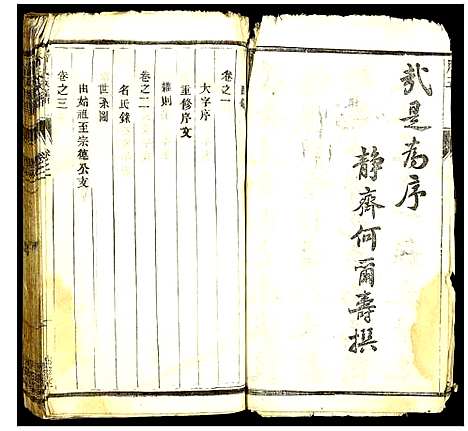 哉是為序
靜齋何爾壽撰
卷之一
大字序
重修序文
譜則
卷之二
名氏錄
世系圖
卷之三
由始祖至宗德公支